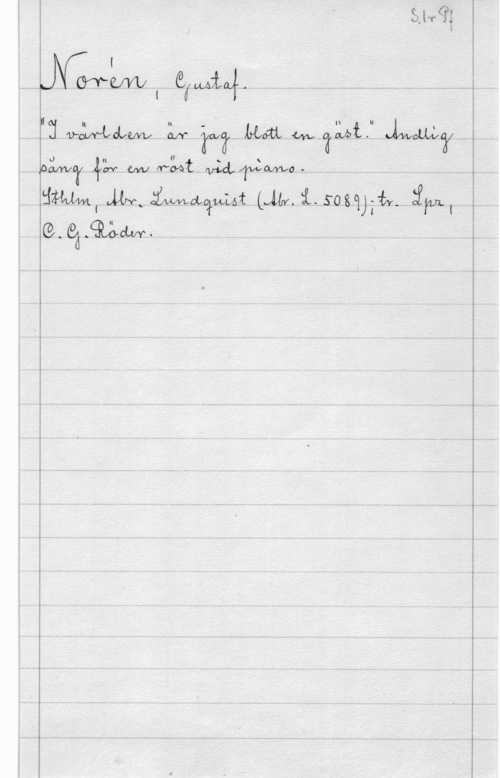 S. 1 r Pf
Norén, Gustaf.
"I världen är jag blott en gäst." Andlig
sång för en röst vid piano.
Sthlm, Abr. Lundquist (Abr. L. 5089); tr. Lpz,
C. G. Röder.